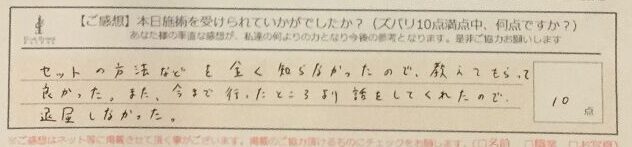 【ご感想】本日施術を受けられていかがでしたか？（ズバリ10点満点中、何点ですか？）
あなた様の率直な感想が、私達の何よりの力となり今後の参考となります。是非ご協力お願いします
セットの方法などを全く知らなかったので、教えてもらって
良かった。また、今まで行ったところより話をしてくれたので、
退屈しなかった。
10点
※ご感想はネット等に掲載させて頂く事がございます。掲載のご協力頂けるものにチェックをお願します。(□名前 □職業 □お写真)